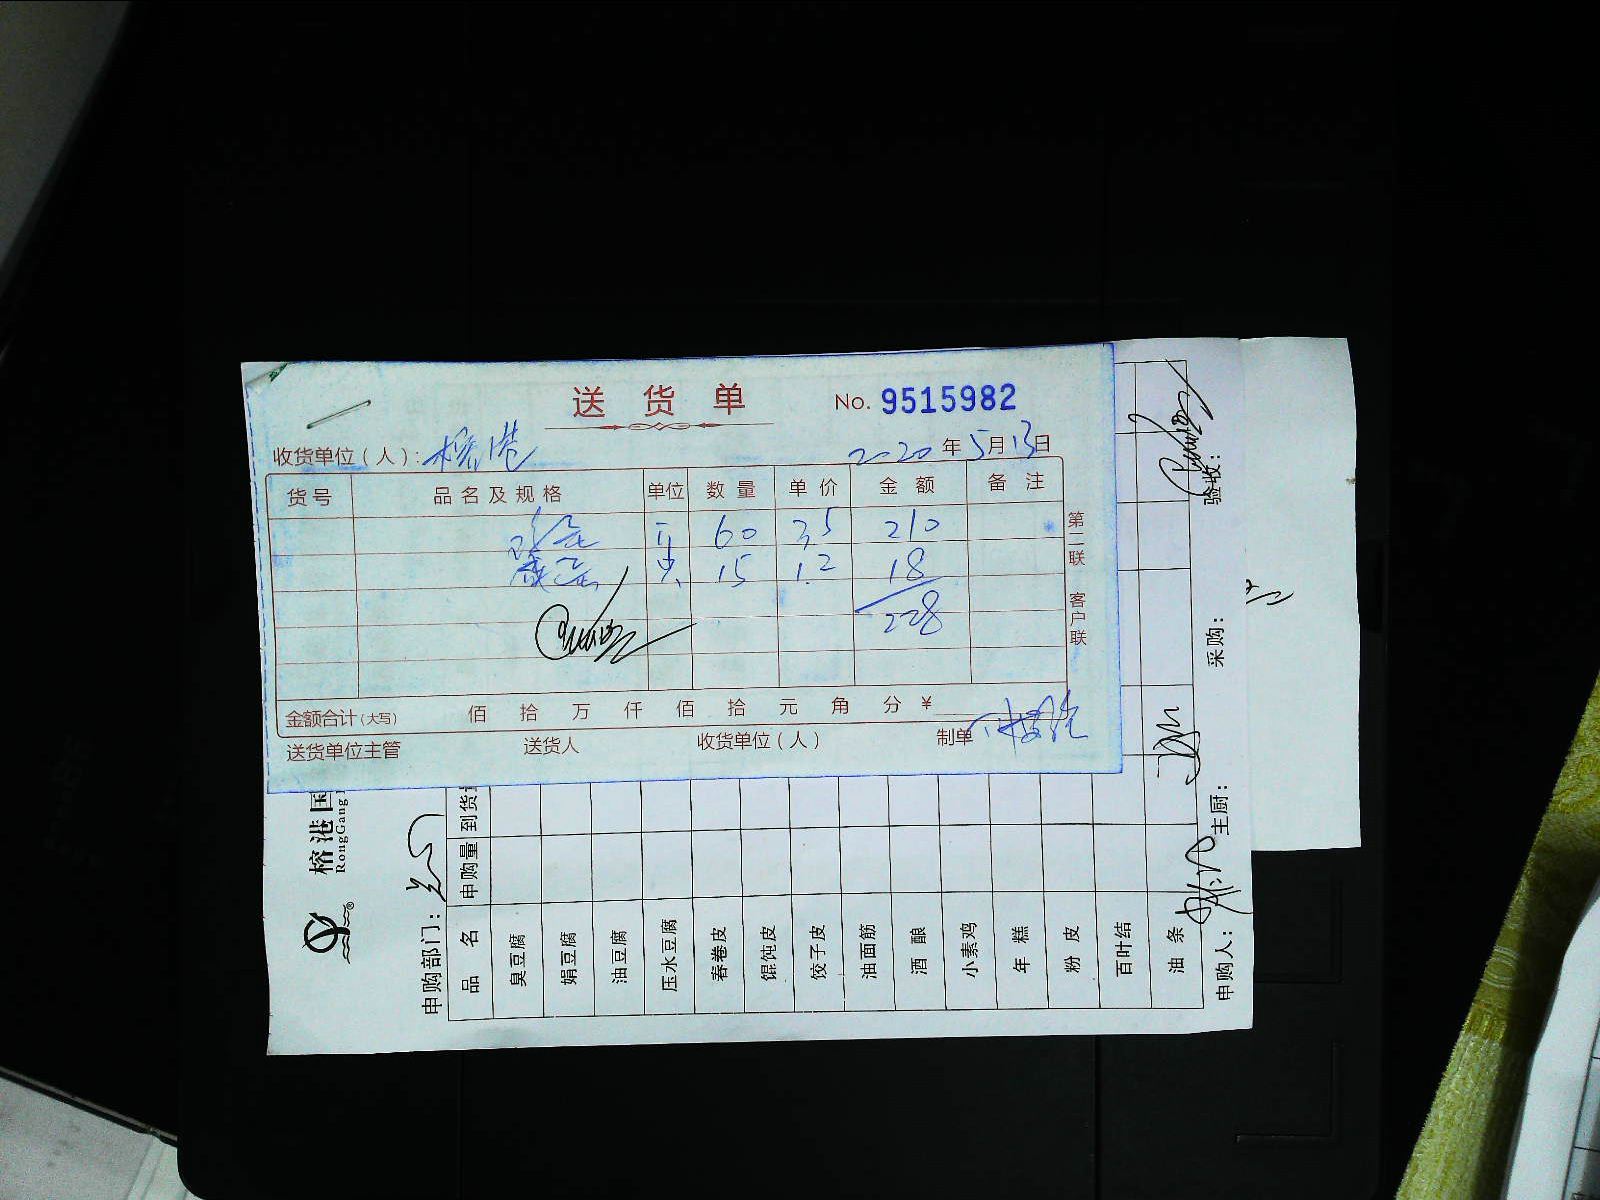 送货单 No. 9515982
收货单位（人）：榕港 2020年5月13日
货号 品名及规格 单位 数量 单价 金额 备注
60 3.5 210
15 1.2 18
228
第二联 客户联
金额合计（大写） 佰 拾 万 仟 佰 拾 元 角 分 ¥
送货单位主管 送货人 收货单位（人） 制单
榕港国
RongGang
申购部门：
品名 申购量 到货
臭豆腐
娟豆腐
油豆腐
压水豆腐
春卷皮
馄饨皮
饺子皮
油面筋
酒酿
小素鸡
年糕
粉皮
百叶结
油条
申购人： 主厨： 采购： 验收：